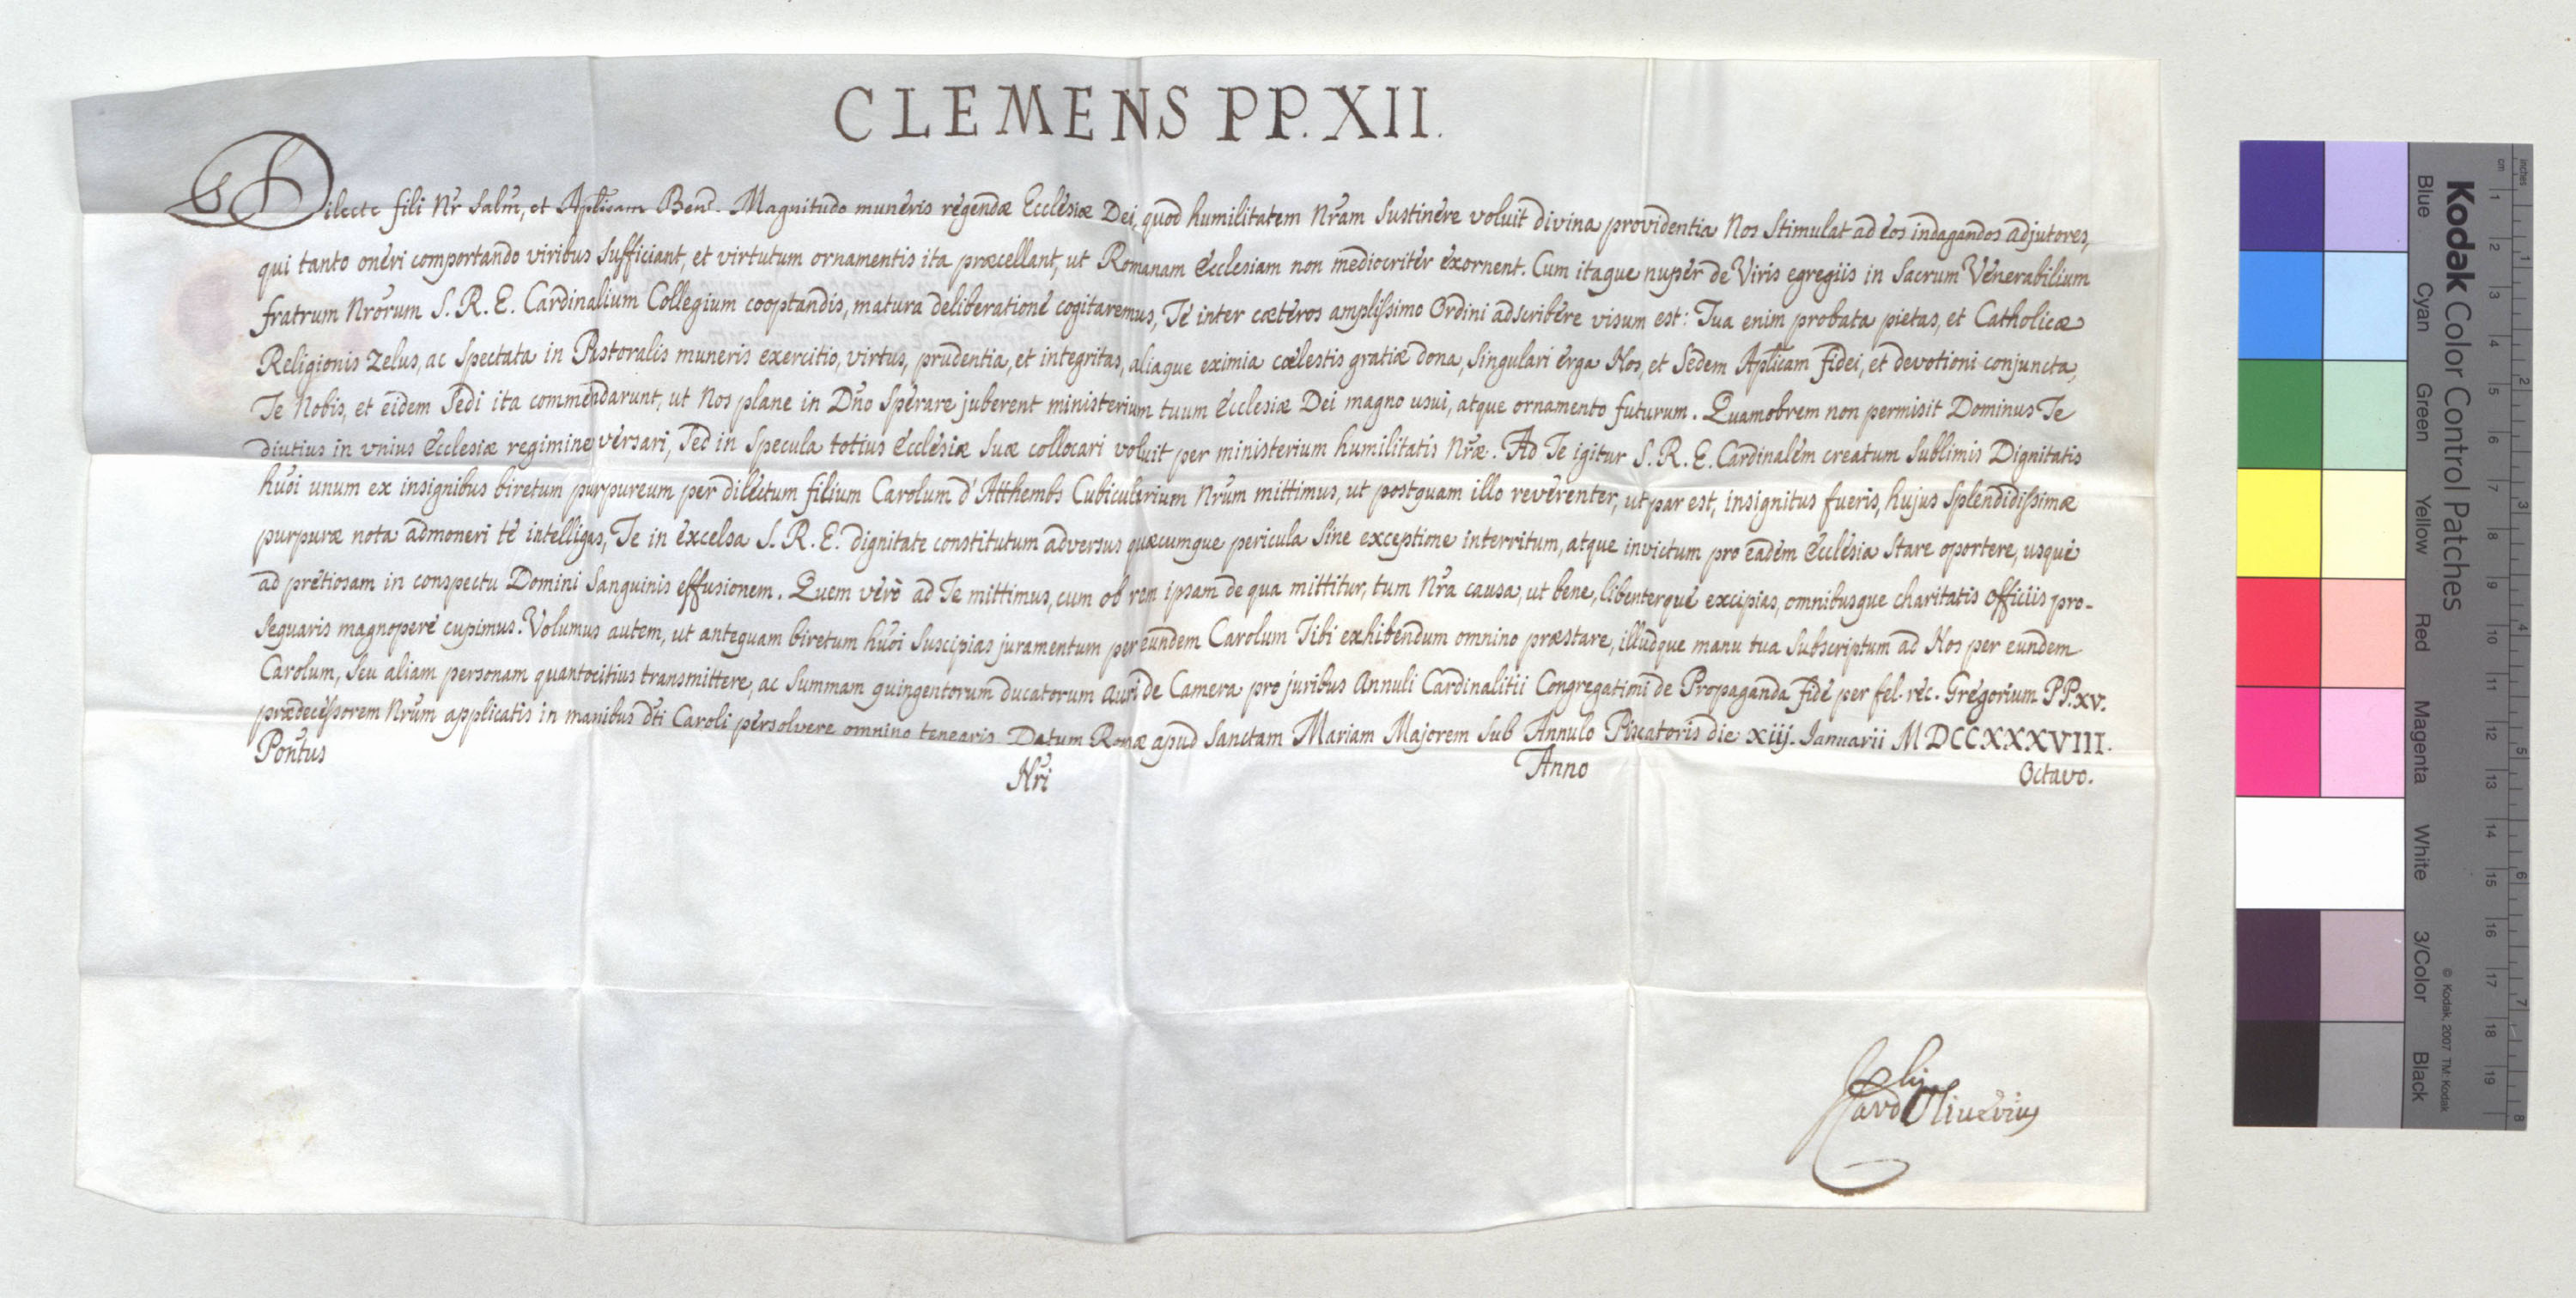 CLEMENS PP. XII.
Dilecte fili Nr Salm, et Aplicam Bend. Magnitudo muneris regendæ Ecclesiæ Dei, quod humilitatem Nram Sustinere voluit divina providentia Nos Stimulat ad eos indagandos adjutores,
qui tanto oneri comportando viribus Sufficiant, et virtutum ornamentis ita præcellant, ut Romanam Ecclesiam non mediocriter exornent. Cum itaque nuper de Viris egregiis in Sacrum Venerabilium
fratrum Nrorum S. R. E. Cardinalium Collegium cooptandis, matura deliberatione cogitaremus, Te inter cæteros amplissimo Ordini adscribere visum est: Tua enim probata pietas, et Catholicæ
Religionis Zelus, ac Spectata in Pastoralis muneris exercitio, virtus, prudentia, et integritas, aliaque eximia cœlestis gratiæ dona, Singulari erga Nos, et Sedem Aplicam fidei, et devotioni conjuncta,
Te Nobis, et eidem Sedi ita commendarunt, ut Nos plane in Dno Sperare juberent ministerium tuum Ecclesiæ Dei magno usui, atque ornamento futurum. Quamobrem non permisit Dominus Te
diutius in vnius Ecclesiæ regimine versari, Sed in Specula totius Ecclesiæ Suæ collocari voluit per ministerium humilitatis Nræ. Ad Te igitur S. R. E. Cardinalem creatum Sublimis Dignitatis
hu̅oi unum ex insignibus biretum purpureum per dilectum filium Carolum d'Atthembs Cubicularium Nrum mittimus, ut postquam illo reverenter, ut par est, insignitus fueris, hujus Splendidissimæ
purpuræ nota admoneri te intelligas, Te in excelsa S. R. E. dignitate constitutum adversus quæcumque pericula Sine exceptione interritum, atque invictum pro eadem Ecclesia Stare oportere, usque
ad pretiosam in conspectu Domini Sanguinis effusionem. Quem verò ad Te mittimus, cum ob rem ipsam de qua mittitur, tum Nra causa, ut bene, libenterque excipias, omnibusque charitatis officiis pro-
Sequaris magnopere cupimus. Volumus autem, ut antequam biretum hu̅oi Suscipias juramentum per eundem Carolum Tibi exhibendum omnino præstare, illudque manu tua Subscriptum ad Nos per eundem
Carolum, Seu aliam personam quantocitius transmittere, ac Summam quingentorum ducatorum auri de Camera pro juribus Annuli Cardinalitii Congregationi de Propaganda fide per fel. rec. Gregorium PP. XV.
prædecessorem Nrum applicatis in manibus dti Caroli persolvere omnino tenearis. Datum Romæ apud Sanctam Mariam Majorem Sub Annulo Piscatoris die xiij. Januarii MDCCXXXVIII.
Pontus Nri Anno Octavo.
Card Oliverius
Kodak Color Control Patches
Blue Cyan Green Yellow Red Magenta White 3/Color Black
© Kodak, 2007 TM: Kodak
cm 1 2 3 4 5 6 7 8 9 10 11 12 13 14 15 16 17 18 19
inches 1 2 3 4 5 6 7 8